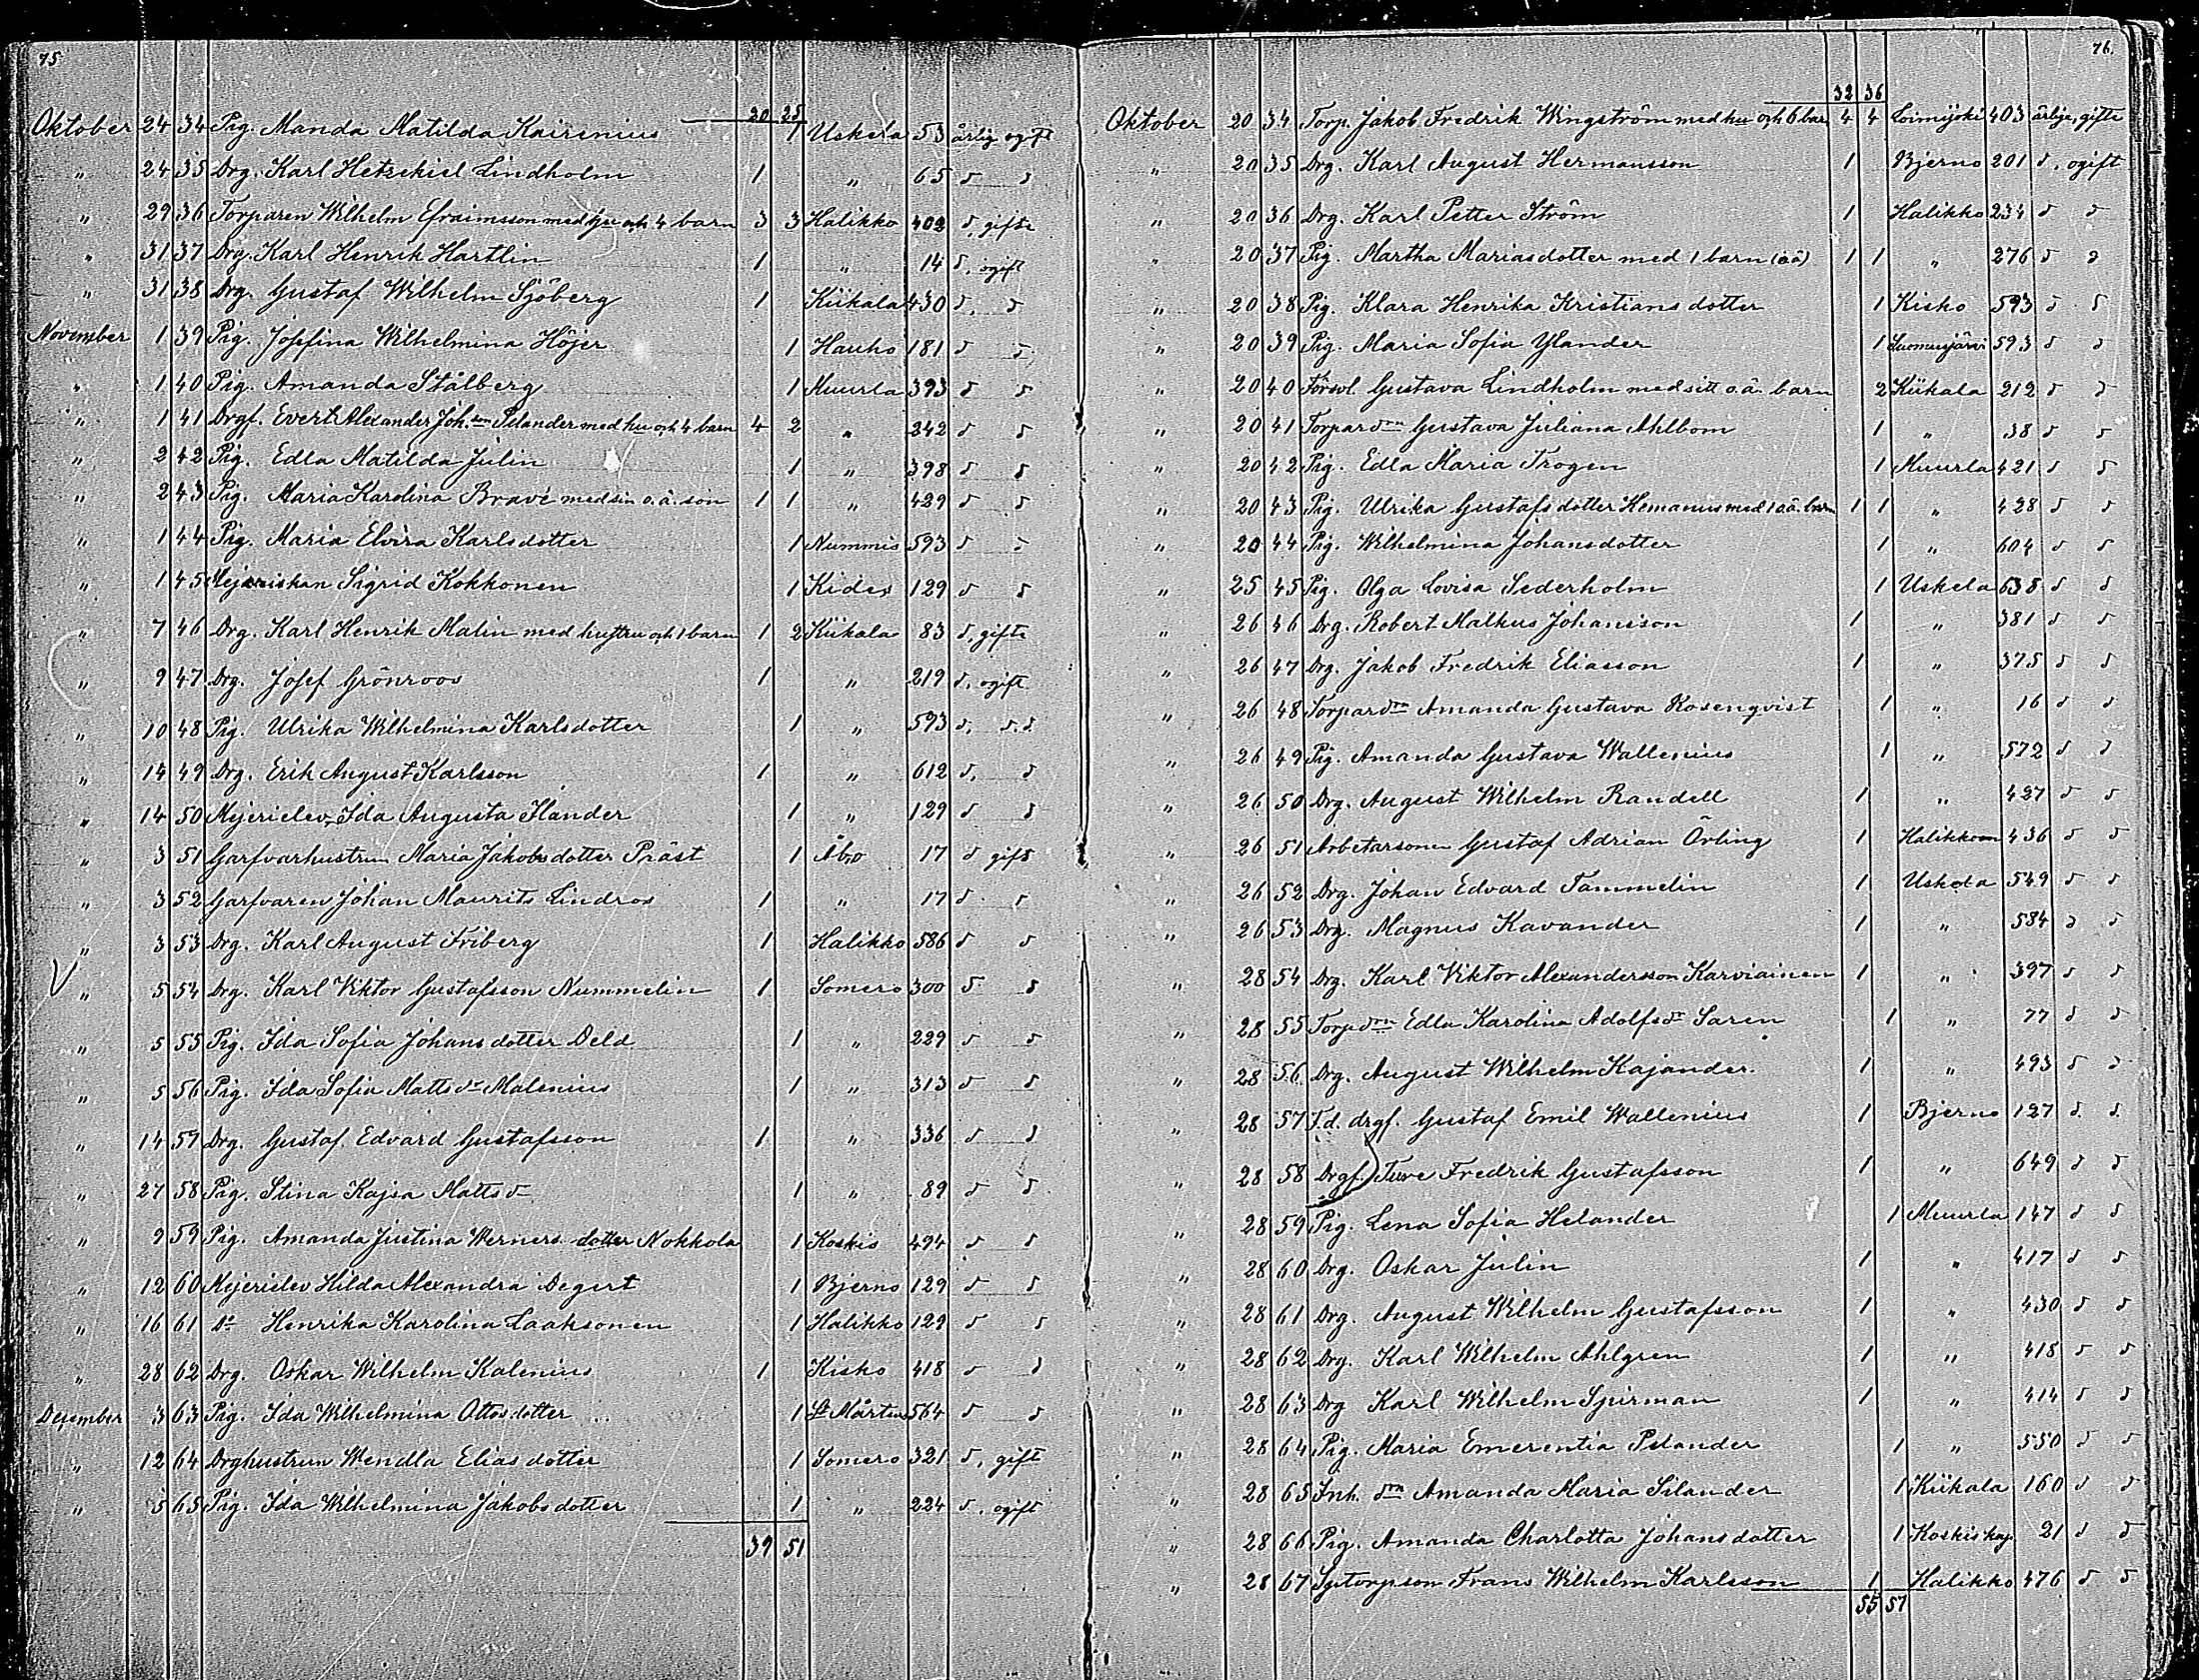 75
20 25
Oktober 24 34 Pig. Manda Matilda Kairenius 1 Uskela 53 ärlig ogift
„ 24 35 Drg. Karl Hetzekiel Lindholm 1 „ 65 d d
„ 29 36 Torparen Wilhelm Efraimsson med hu och 4 barn 3 3 Halikko 402 d, gifte
„ 31 37 Drg. Karl Henrik Hartlin 1 „ 14 d, ogift
„ 31 38 Drg. Gustaf Wilhelm Sjöberg 1 Kiikala 430 d, d
November 1 39 Pig. Josefina Wilhelmina Höjer 1 Hauho 181 d d
„ 1 40 Pig. Amanda Stålberg 1 Muurla 393 d d
„ 1 41 Drgf. Evert Alexander Joh.son Pelander med hu och 4 barn 4 2 „ 242 d d
„ 2 42 Pig. Edla Matilda Julin 1 „ 398 d d
„ 2 43 Pig. Maria Karolina Bravé med sin o.ä. son 1 1 „ 429 d d
„ 1 44 Pig. Maria Elvira Karlsdotter 1 Nummis 593 d d
„ 1 45 Mejeriskan Sigrid Kokkonen 1 Kides 129 d d
„ 7 46 Drg. Karl Henrik Malin med hustru och 1 barn 1 2 Kiikala 83 d, gifte
„ 9 47 Drg. Josef Grönroos 1 „ 219 d, ogift
„ 10 48 Pig. Ulrika Wilhelmina Karlsdotter 1 „ 593 d, d.d
„ 14 49 Drg. Erik August Karlsson 1 „ 612 d, d
„ 14 50 Mejerielev Ida Augusta Ilander 1 „ 129 d d
„ 3 51 Garfvarhustrun Maria Jakobsdotter Präst 1 Åbo 17 d gift
„ 3 52 Garfvaren Johan Maurits Lindros 1 „ 17 d d
„ 3 53 Drg. Karl August Friberg 1 Halikko 586 d d
„ 5 54 Drg. Karl Viktor Gustafsson Nummelin 1 Somero 300 d d
„ 5 55 Pig. Ida Sofia Johansdotter Deld 1 „ 229 d d
„ 5 56 Pig. Ida Sofia Matts dr Malenius 1 „ 313 d d
„ 14 57 Drg. Gustaf Edvard Gustafsson 1 „ 336 d d
„ 27 58 Pig. Stina Kajsa Matts dr 1 „ 89 d d
„ 9 59 Pig. Amanda Justina Werners dotter Nokkola 1 Koskis 494 d d
„ 12 60 Mejerielev Hilda Alexandra Degert 1 Bjerno 129 d d
„ 16 61 do Henrika Karolina Laaksonen 1 Halikko 129 d d
„ 28 62 Drg. Oskar Wilhelm Kalenius 1 Kisko 418 d d
Desember 3 63 Pig. Ida Wilhelmina Ottosdotter 1 St Mårtens 564 d d
„ 12 64 Drghustrun Wendla Eliasdotter 1 Somero 321 d, gift
„ 5 65 Pig. Ida Wilhelmina Jakobsdotter 1 „ 224 d, ogift
39 51
76.
32 36
Oktober 20 34 Torp. Jakob Fredrik Wingström med hu och 6 barn 4 4 Loimijoki 403 ärlige, gifte
„ 20 35 Drg. Karl August Hermansson 1 Bjerno 201 d, ogift
„ 20 36 Drg. Karl Petter Ström 1 Halikko 234 d d
„ 20 37 Pig. Martha Mariasdotter med 1 barn (oä) 1 1 „ 276 d d
„ 20 38 Pig. Klara Henrika Kristiansdotter 1 Kisko 593 d d
„ 20 39 Pig. Maria Sofia Ylander 1 Suomusjärvi 593 d d
„ 20 40 Försvl. Gustava Lindholm med sitt o.ä. barn 2 Kiikala 212 d d
„ 20 41 Torpardrn Gustava Juliana Ahlbom 1 „ 38 d d
„ 20 42 Pig. Edla Maria Trogen 1 Muurla 421 d d
„ 20 43 Pig. Ulrika Gustafsdotter Hemanius med 1 o.ä. barn 1 1 „ 428 d d
„ 20 44 Pig. Wilhelmina Johansdotter 1 „ 604 d d
„ 25 45 Pig. Olga Lovisa Sederholm 1 Uskela 638 d d
„ 26 46 Drg. Robert Malkus Johansson 1 „ 381 d d
„ 26 47 Drg. Jakob Fredrik Eliasson 1 „ 375 d d
„ 26 48 Torpardrn Amanda Gustava Rosenqvist 1 „ 16 d d
„ 26 49 Pig. Amanda Gustava Wallenius 1 „ 572 d d
„ 26 50 Drg. August Wilhelm Randell 1 „ 427 d d
„ 26 51 Arbetarsonen Gustaf Adrian Örling 1 Halikko 436 d d
„ 26 52 Drg. Johan Edvard Tammelin 1 Uskela 549 d d
„ 26 53 Drg. Magnus Kavander 1 „ 584 d d
„ 28 54 Drg. Karl Viktor Alexandersson Karviainen 1 „ 397 d d
„ 28 55 Torpdrn Edla Karolina Adolfsdr Saren 1 „ 77 d d
„ 28 56 Drg. August Wilhelm Kajander 1 „ 493 d d
„ 28 57 F.d. drgf. Gustaf Emil Wallenius 1 Bjerno 127 d d
„ 28 58 Drgf. Ture Fredrik Gustafsson 1 „ 649 d d
„ 28 59 Pig. Lena Sofia Helander 1 Muurla 147 d d
„ 28 60 Drg. Oskar Julin 1 „ 417 d d
„ 28 61 Drg. August Wilhelm Gustafsson 1 „ 430 d d
„ 28 62 Drg. Karl Wilhelm Ahlgren 1 „ 418 d d
„ 28 63 Drg Karl Wilhelm Spirman 1 „ 414 d d
„ 28 64 Pig. Maria Emerentia Pelander 1 „ 550 d d
„ 28 65 Inh. drn Amanda Maria Silander 1 Kiikala 160 d d
„ 28 66 Pig. Amanda Charlotta Johansdotter 1 Koskis kap 21 d d
„ 28 67 Sytorpson Frans Wilhelm Karlsson 1 Halikko 476 d d
55 57